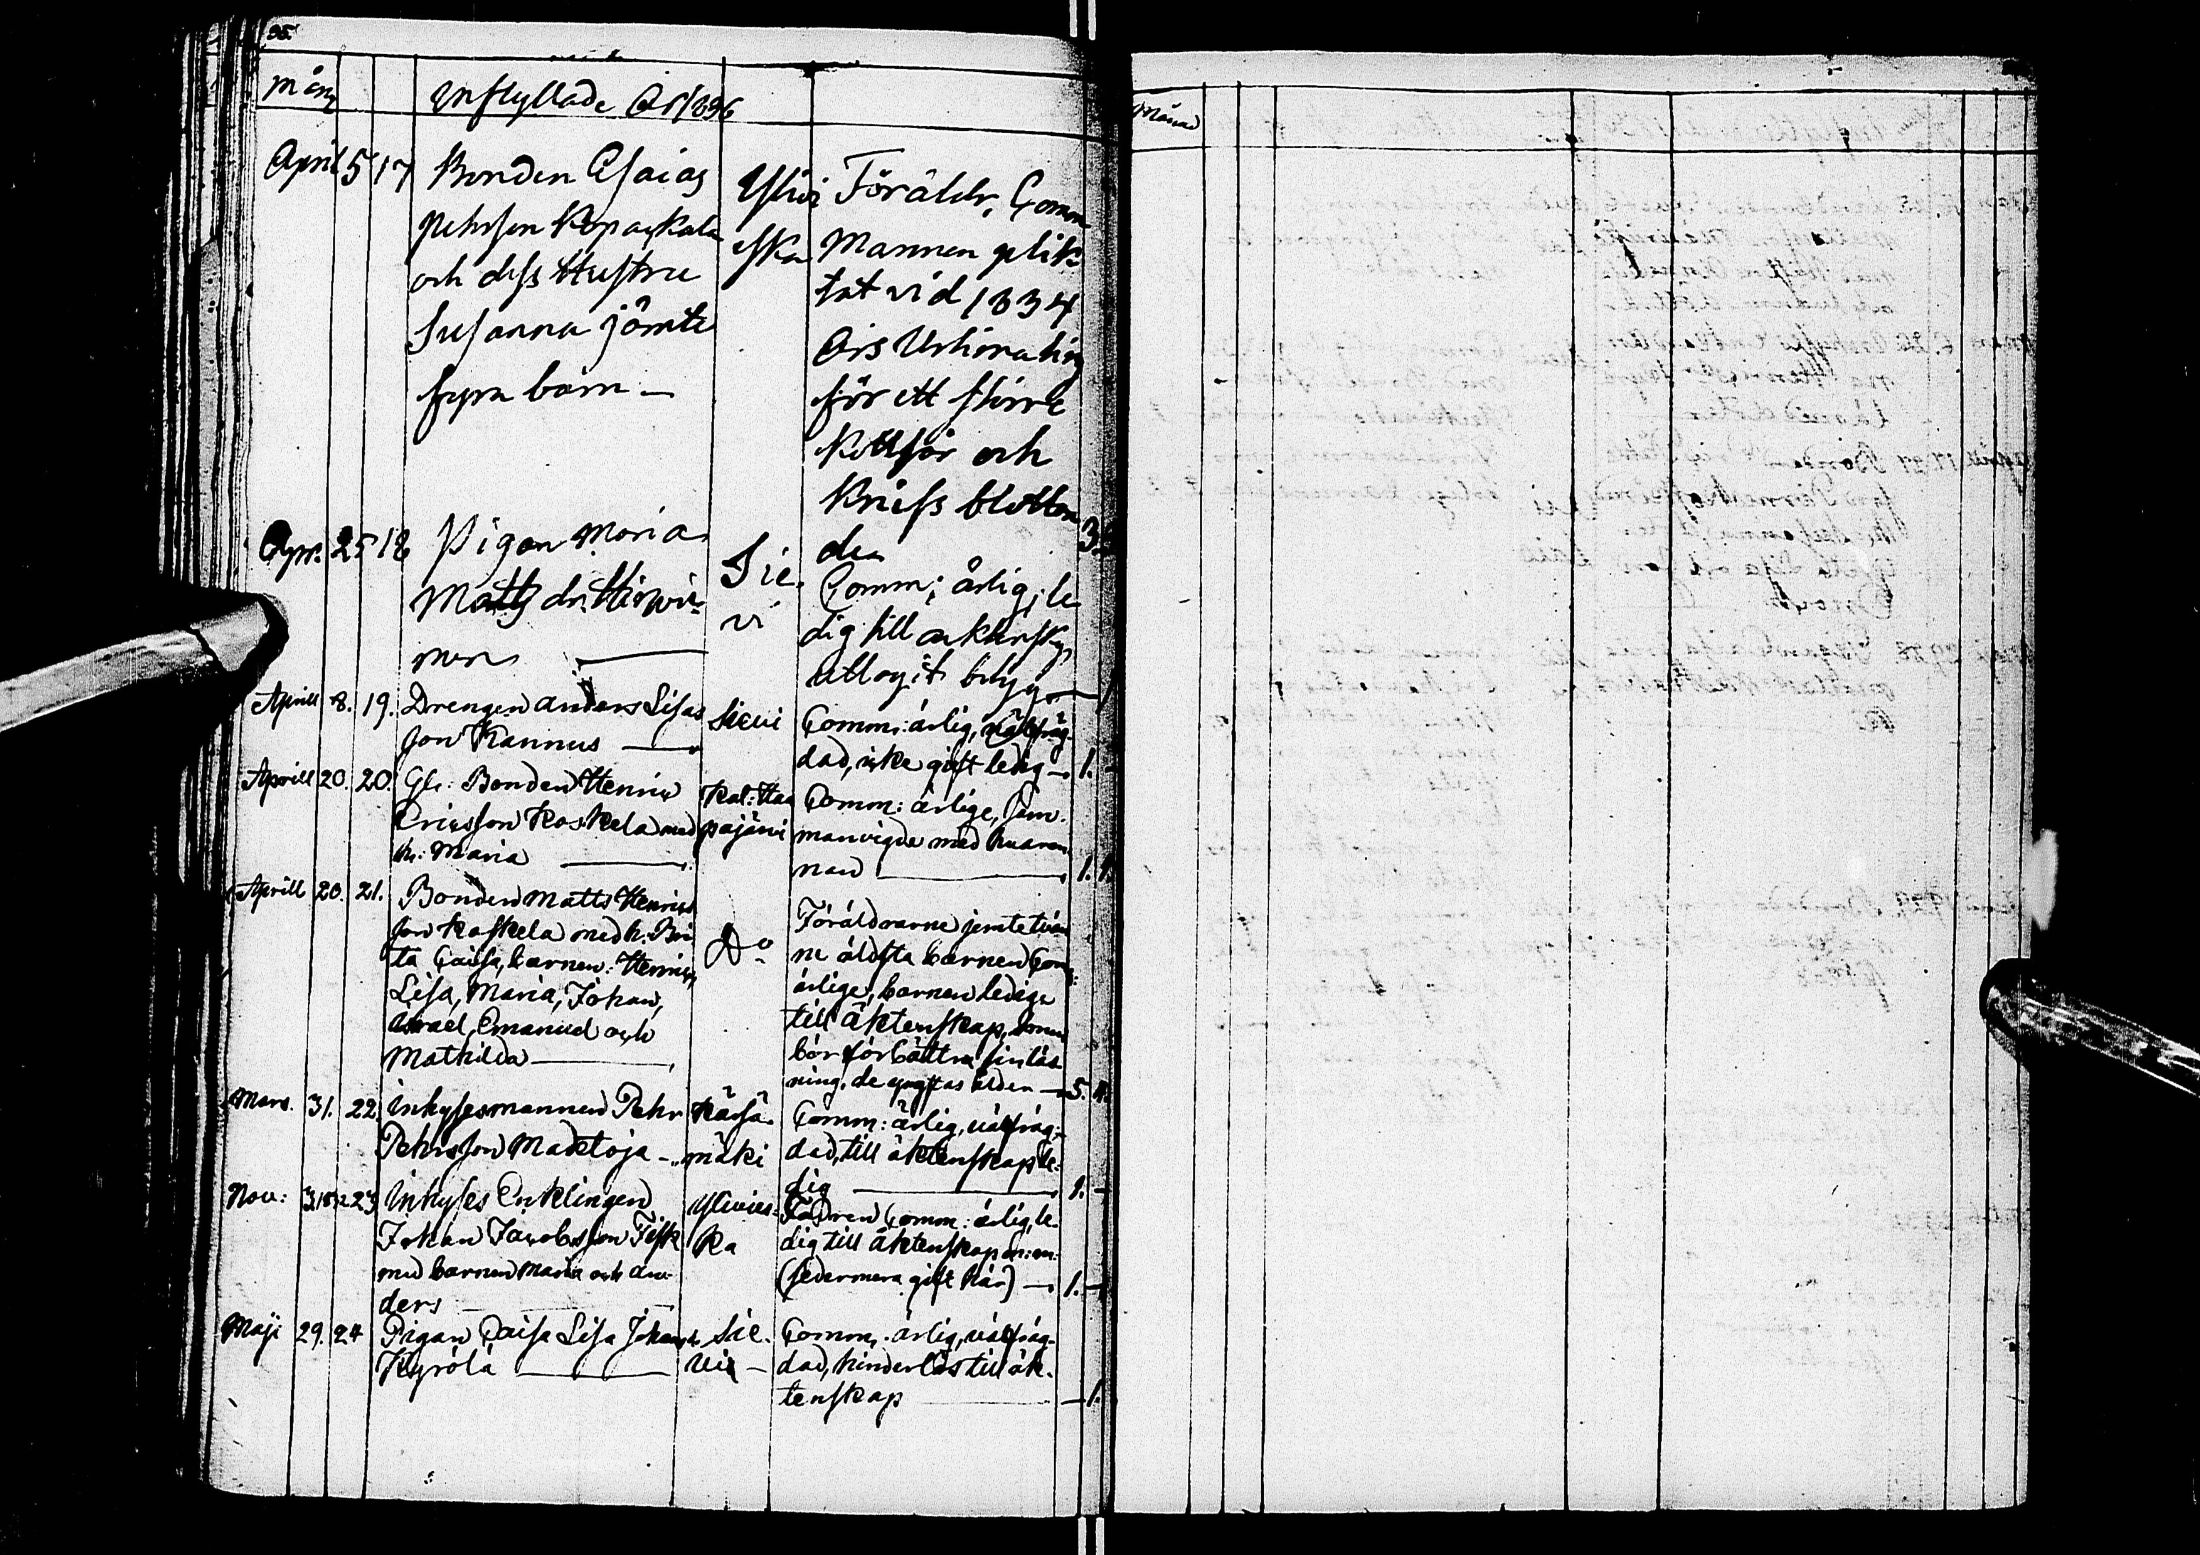 95.
Mån Inflyttade År 1836
April 5 17 Bonden Esaias
Pehrsson Kopakkala
och dess Hustru
Susanna jämte
fyra barn —
Ylivi
eska
Föräldr. Comm
Mannen plik-
tat vid 1834
års
för ett större
och
Knifs blottan
de 3.
Apr. 25 18 Pigan Maria
Matts dr. Hirwi-
nen
Sie.
vi
Comm; ärlig, le
dig till äktensk.
uttagit betyg — 1
Aprill 8. 19. Drengen Anders Lisas
son Kannus
Sievi
Comm: ärlig, välfräg-
dad, icke gift ledig — 1. -
Aprill 20. 20. Gl: Bonden Henric
Ericsson Koskela med
h: Maria
Kal: Haa
pajärvi
Comm: ärlige, sam-
manvigde med hvaran-
nan 1. 1.
Aprill 20. 21. Bonden Matts Henrics
son Koskela med h. Bri
ta Caisa, barnen: Henric,
Lisa, Maria, Johan,
Israel, Emanuel och
Mathilda
Do
Föräldrarne jemte tvän
ne äldsta barnen Com:
ärlige, barnen ledige
till äktenskap, sonen
bör förbättra sin läs
ning, de yngstas ålder — 5. 4.
Mars. 31. 22. Inhysesmannen Pehr
Pehrsson Mattoja -
Kärsä-
mäki
Comm: ärlig, välfräg-
dad, till äktenskap le-
dig 1. -
Nov: 23 Inhyses Enklingen
Johan Jacobsson Fisk
med barnen Maria och An-
ders
Ylivies-
ka
Fadren Comm: ärlig, le-
dig till äktenskap
(sedermera gift här) — 1. -
Maji 29. 24 Pigan Caisa Lisa Johansd.
Kyrölä
Sie-
vi -
Comm. ärlig, välfräg-
dad, hinderlös till äk-
tenskap - 1.
Månad